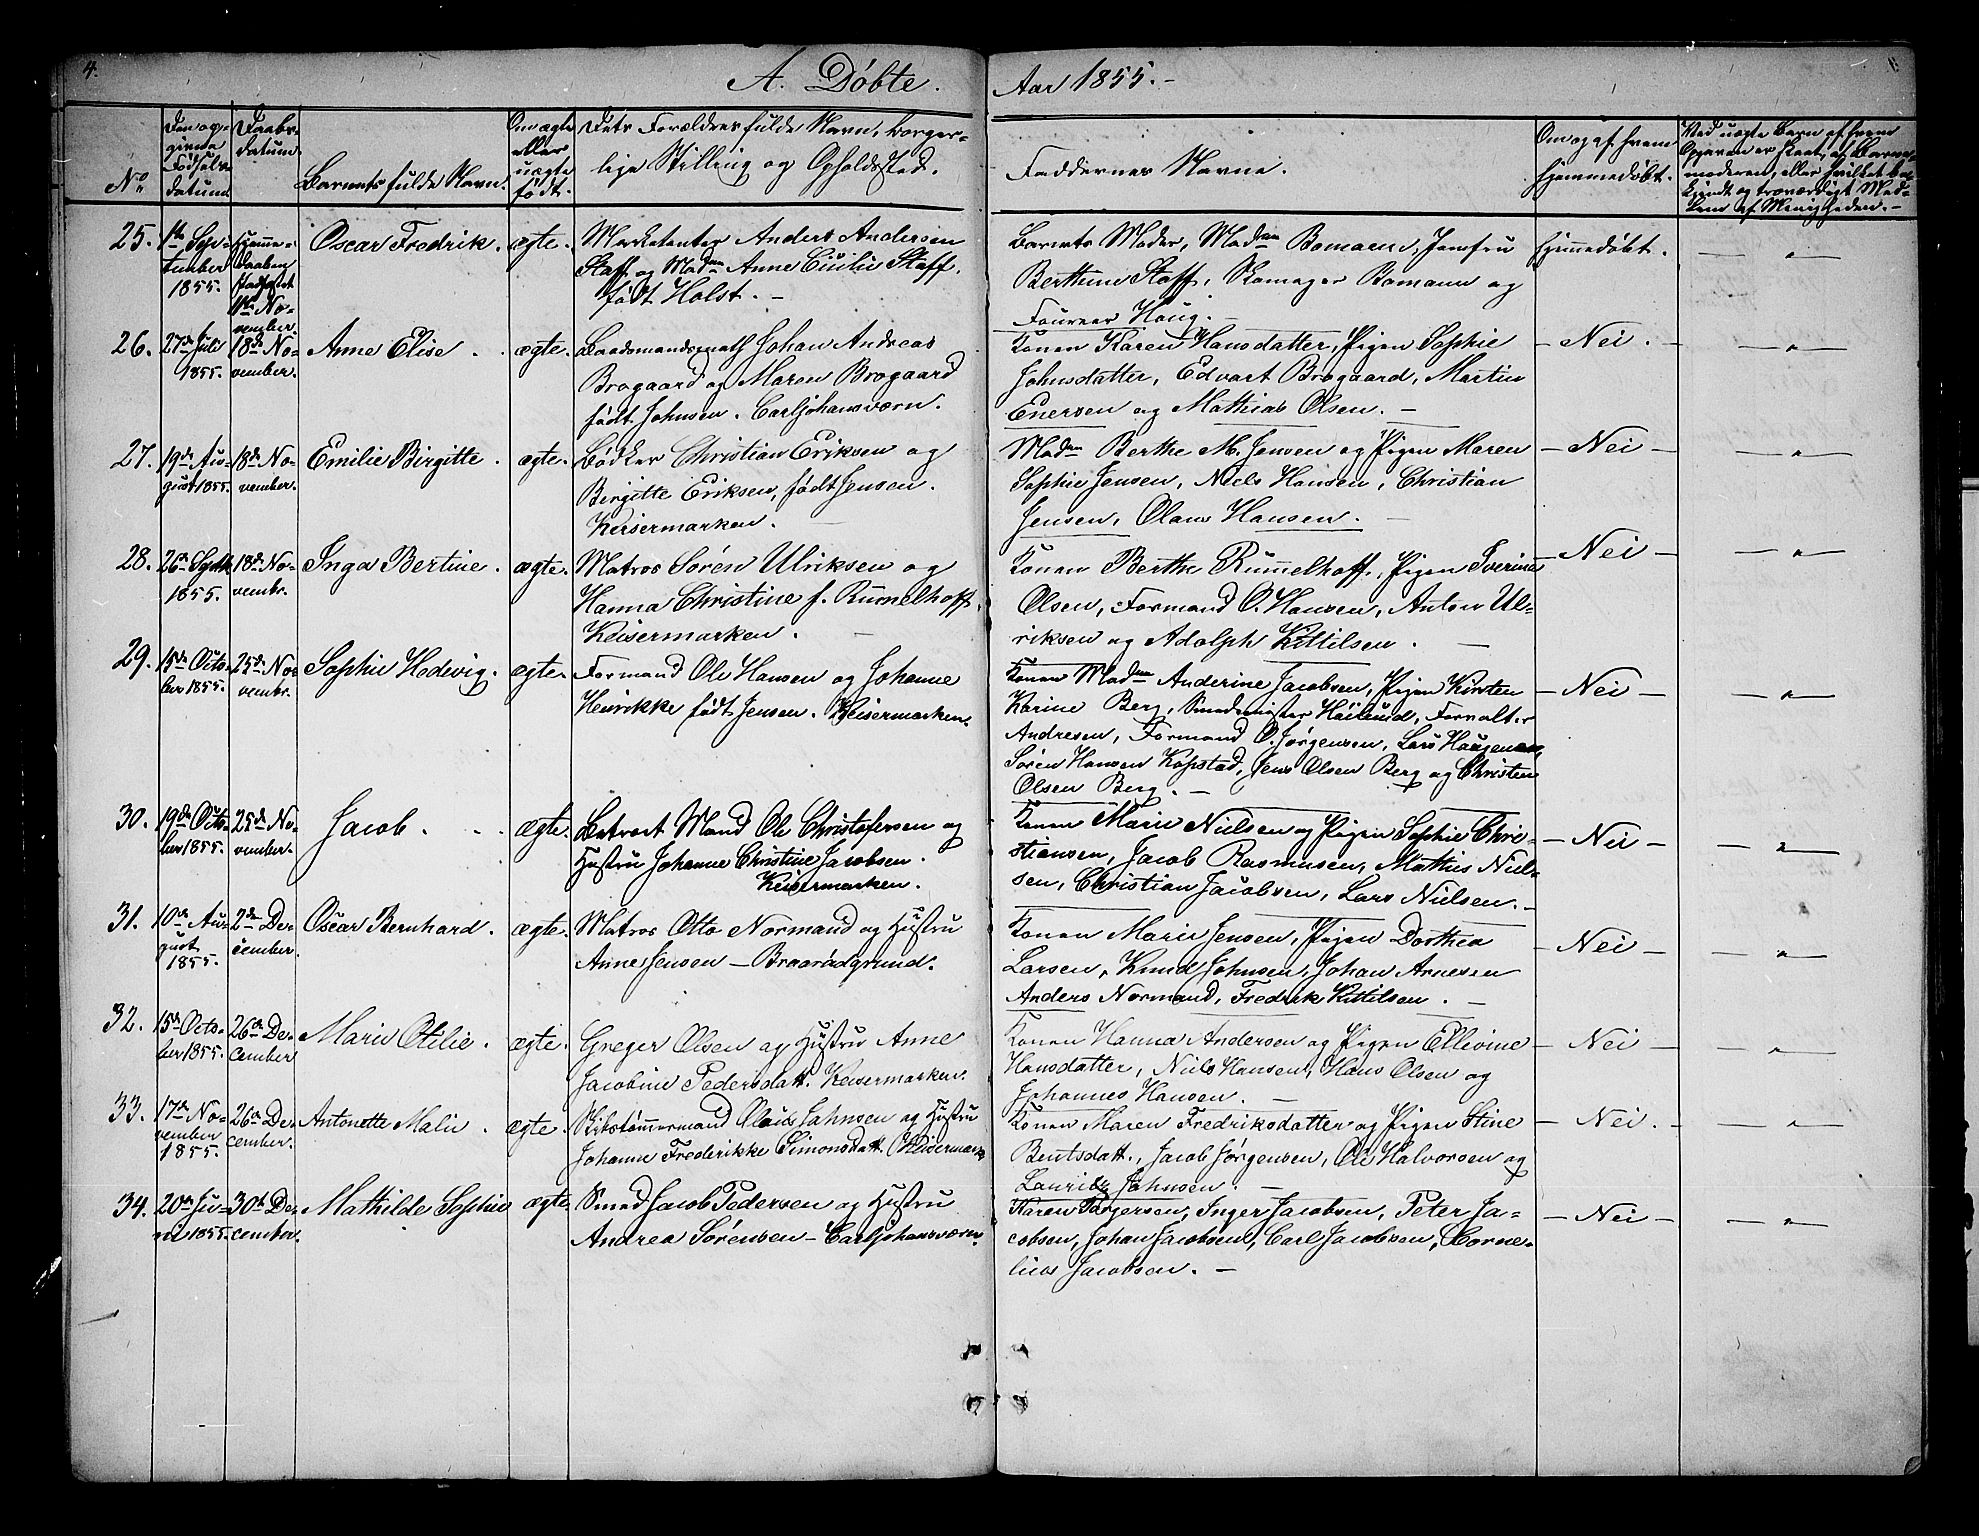 4.
A. Døbte. Aar 1855.-
No
Den op-
givne
Fødsels-
datum
Daabs-
datum.
Barnets fulde Navn.
Om ægte
eller
uægte
født.
Dets Forældres fulde Navn, borger-
lige Stilling og Opholdssted.
Faddernes Navne.
Om og af hvem
hjemmedøbt.
Ved uægte Barn af hvem
Opgaven er skeet, af Barne-
moderen, eller hvilket be-
kjendt og troværdigt Med-
lem af Menigheden.-
25. 1ste Sep-
tember
1855.
Hjemme-
daaben
stadfæstet
11te No-
vember.
Oscar Fredrik. ægte.
Marketenter Anders Andersen
Staff. og Madam Anne Cicilie Staff,
født Holst. -
Barnets Moder, Madam Bomann, Jomfru
Berthine Staff, Skomager Bomann og
Fourner Houg. -
Hjemmedøbt. — " —
26. 27de Juli
1855.
18de No-
vember.
Anne Elise. ægte.
Baadsmandsmath Johan Andreas
Brogaard og Maren Brogaard
født Johnsen. Carljohansværn.
Konen Karen Hansdatter, Pigen Sophie
Johnsdatter, Edvart Brogaard, Martin
Enersen og Mathias Olsen. -
- Nei. - — " —
27. 19de Au-
gust 1855.
18de No-
vember.
Emilie Birgitte. ægte.
Bødker Christian Eriksen og
Birgitte Eriksen, født Jensen.
Keisermarken. -
Madam Berthe M. Jensen og Pigen Maren
Sophie Jensen, Niels Hansen, Christian
Jensen, Olaus Hansen. -
- Nei - — " —
28. 26de Septbr
1855.
18de No-
vembr.
Inga Bertine. ægte.
Matros Søren Ulriksen og
Hanna Christine f. Rummelhoff,
Keisermarken. -
Konen Berthe Rummelhoff, Pigen Sverine
Olsen, Formand O. Hansen, Anton Ul-
riksen og Adolph Kittilsen. -
- Nei - — " —
29. 15de Octo-
ber 1855.
25de No-
vembr.
Sophie Hedevig. ægte.
Formand Ole Hansen og Johanne
Henrikke født Jensen. Keisermarken.
Konen Madam Anderine Jacobsen, Pigen Kirsten
Karine Berg, Smedmester Höilund, Forvalter
Andresen, Formand O. Jørgensen, Lars Haugenæs,
Søren Hansen Kopstad, Jens Olsen Berg og Christen
Olsen Berg. -
- Nei - — " —
30. 19de Octo-
ber 1855.
25de No-
vember.
Jacob. ægte.
Extraort Mand Ole Christofersen og
Hustru Johanne Christine Jacobsen.
Keisermarken.
Konen Marie Nielsen og Pigen Sophie Chri-
stiansen, Jacob Rasmussen, Mathias Niel-
sen, Christian Jacobsen, Lars Nielsen. -
- Nei - — " —
31. 10de Au-
gust
1855.
2den De-
cember.
Oscar Bernhard. ægte.
Matros Otto Normand og Hustru
Anne Jensen - Braarødgrund.
Konen Marie Jensen, Pigen Dorthea
Larsen, Knud Johnsen, Johan Arnesen
Anders Normand, Fredrik Kittilsen. -
- Nei - — " —
32. 15de Octo-
ber 1855.
26de De-
cember
Marie Otilie. ægte.
Greger Olsen og Hustru Anne
Jacobine Pedersdatt. Keisermarken.
Konen Hanna Andersen og Pigen Ellevine
Hansdatter, Niels Hansen, Hans Olsen og
Johannes Hansen. -
- Nei - — " —
33. 17de No-
vember
1855.
26de De-
cember.
Antonette Malie. ægte.
Skibstømmermand Olaus Johnsen og Hustru
Johanne Frederikke Simonsdatt. Keisermark.
Konen Maren Fredriksdatter og Pigen Stine
Bentsdatt., Jacob Jørgensen, Ole Halvorsen og
Lauritz Johnsen. -
- Nei. - — " —
34. 20de Ju-
ni 1855.
30te De-
cember.
Mathilde Sophie ægte.
Smed Jacob Pedersen og Hustru
Andrea Sørensen - Carljohansværn.
Karen Torgersen, Inger Jacobsen, Peter Ja-
cobsen, Johan Jacobsen, Carl Jacobsen, Corne-
lius Jacobsen. -
- Nei - — " —